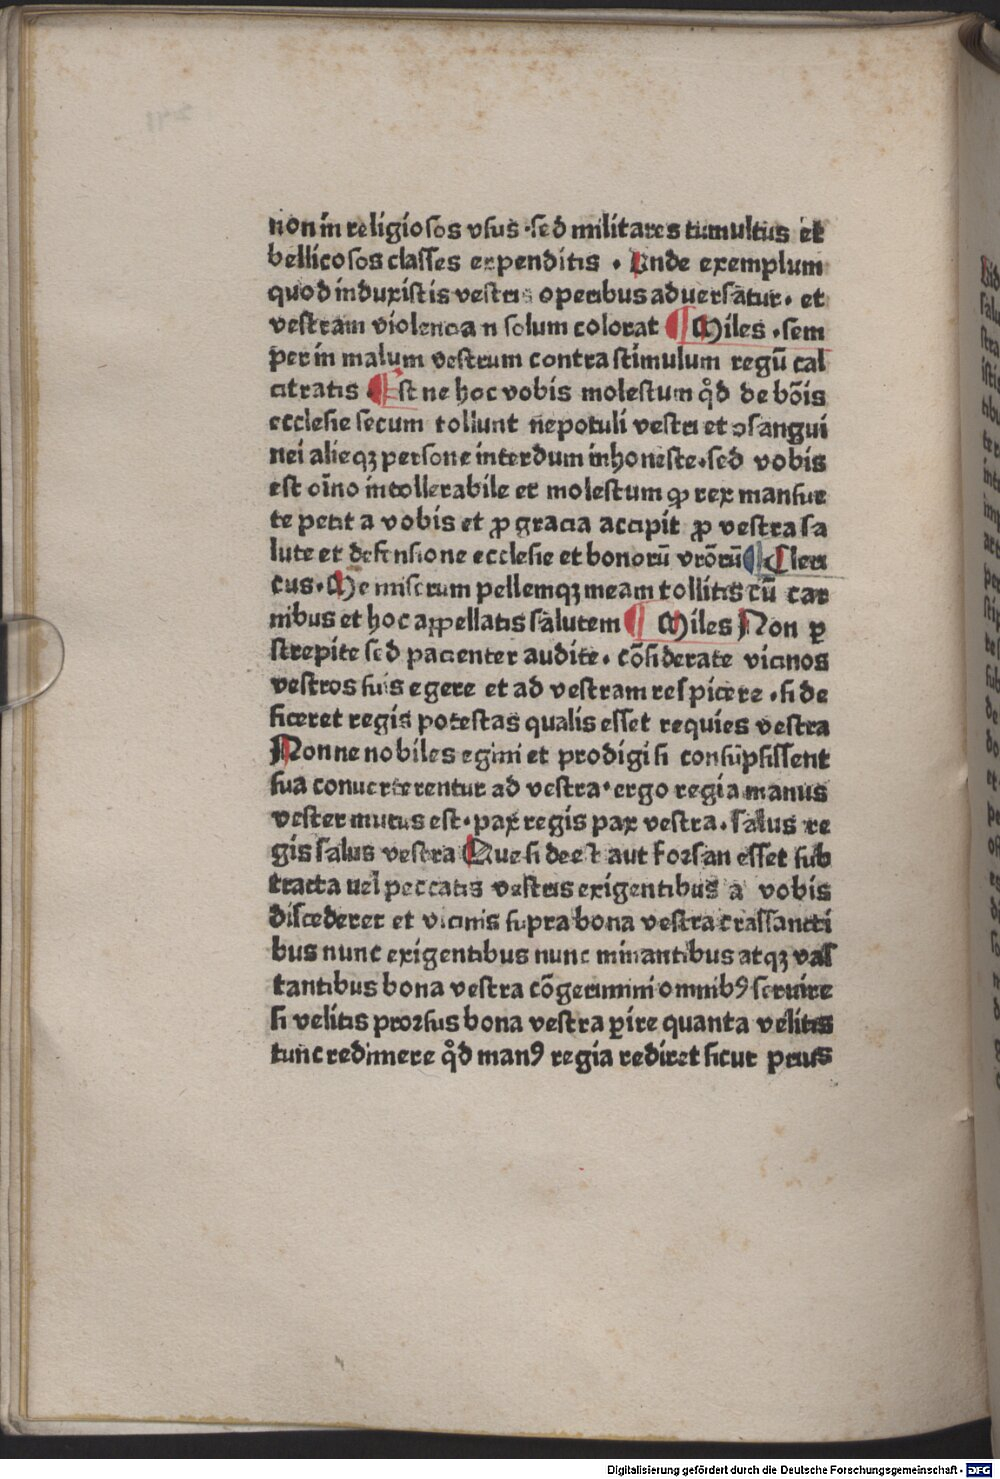 non in religiosos vsus ·sed militares tumultus et
bellicosos classes expenditis . Vnde exemplum
quod induxistis vestris operibus aduersatur. et
vestram violencia n solum colorat ¶ Miles .sem
per in malum vestrum contra stimulum regū cal
citratis . ¶ Est ne hoc vobis molestum qd̊ de bōis
ecclesie secum tollunt nepotuli vestri et ɔsangui
nei alieqꝫ persone interdum inhoneste.sed vobis
est oīno intollerabile et molestum ꝙ rex mansue
te petit a vobis et ꝓ gracia accipit ꝓ vestra sa
lute et defensione ecclesie et bonorū vrōrū ¶ Cleri
cus. Me miserum pellemqꝫ meam tollitis cū car
nibus et hoc appellatis salutem ¶ Miles Non ꝑ
strepite sed pacienter audite. cōsiderate vicinos
vestros suis egere et ad vestram respicere .si de
ficeret regis potestas qualis esset requies vestra
Nonne nobiles egini et prodigi si consūpsissent
sua conuerterentur ad vestra·ergo regia manus
vester murus est.pax regis pax vestra.salus re
gis salus vestra Que si deest aut forsan esset sub
tracta uel peccatis vestris exigentibus a vobis
discederet et vicinis supra bona vestra crassanti
bus nunc exigentibus nunc minantibus atqꝫ vas
tantibus bona vestra cōgerimini omnibꝰ seruire
si velitis prorsus bona vestra ꝑire quanta velitis
tunc redimere qd̊ manꝰ regia rediret sicut prius
Digitalisierung gefördert durch die Deutsche Forschungsgemeinschaft - DFG